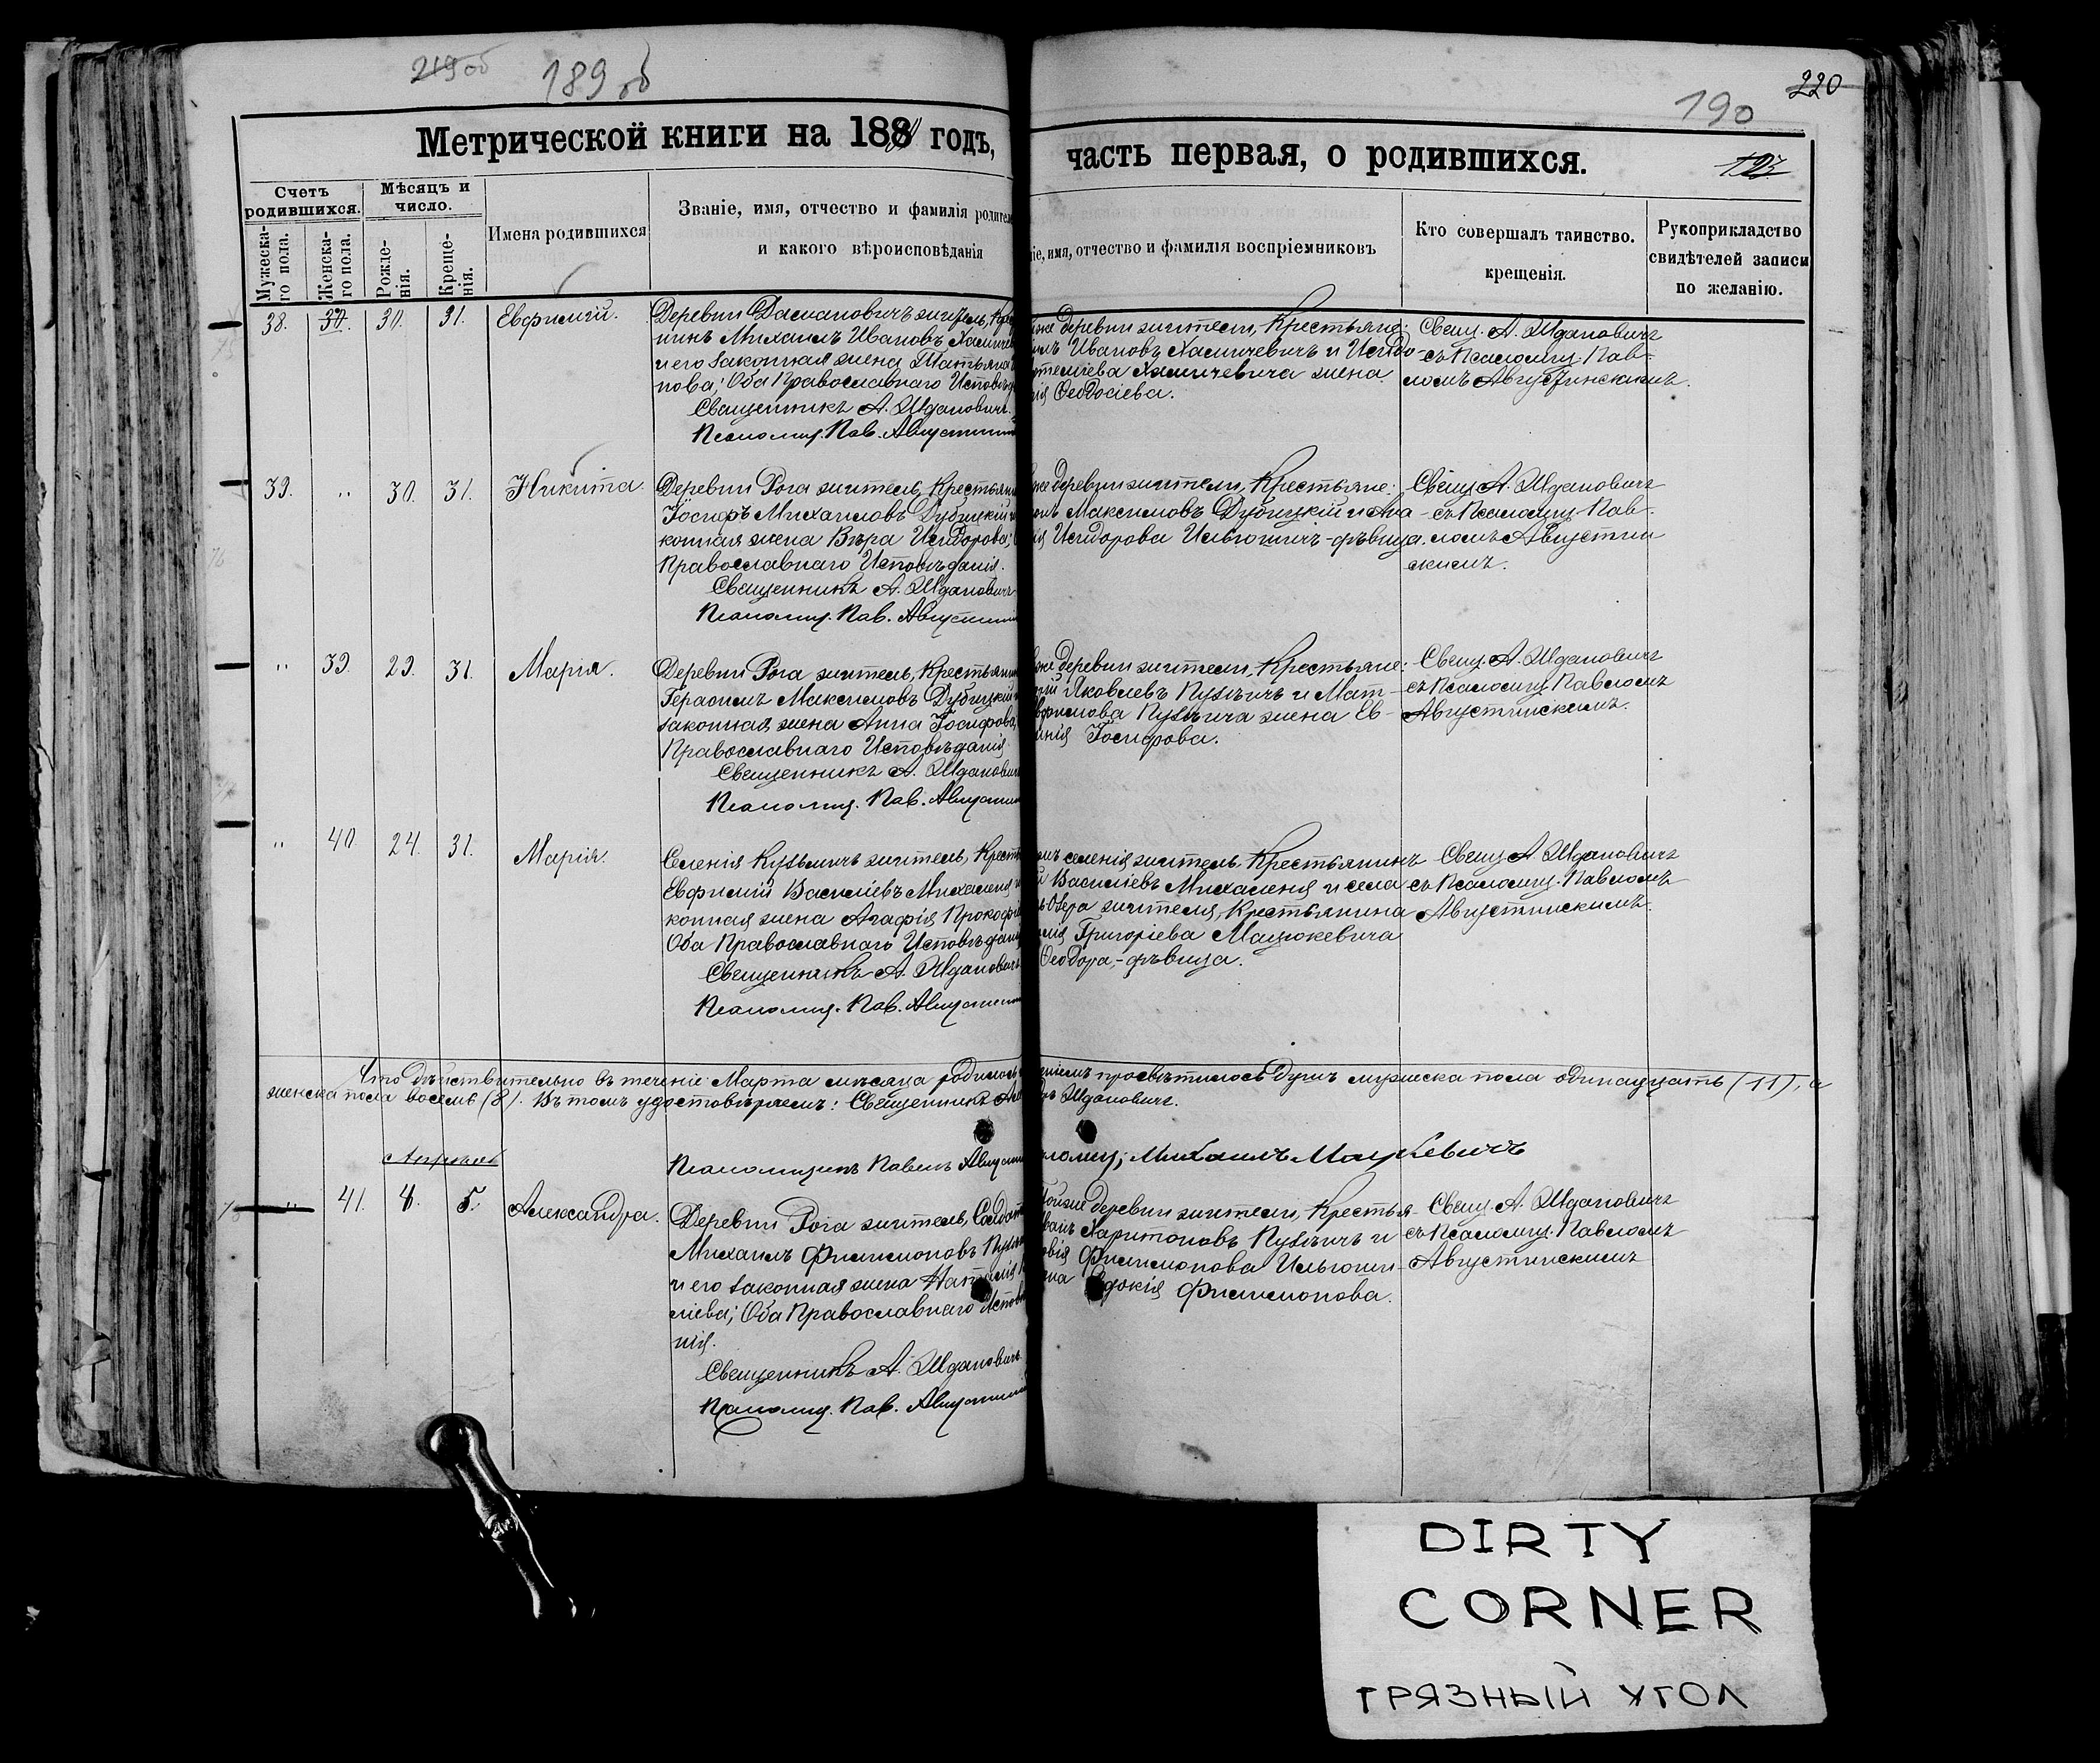 219об
189 об
220
190
Метрической книги на 188 годъ,
часть первая, о родившихся.
Счетъ родившихся.
Мѣсяцъ и число.
Мужеска-го пола.
Женска-го пола.
Рожде-нія.
Креще-нія.
Имена родившихся
Званіе, имя, отчество и фамилія родител
и какого вѣроисповѣданія
іе, имя, отчество и фамилія воспріемниковъ
Кто совершалъ таинство.
крещенія.
Рукоприкладство
свидѣтелей записи
по желанію.
38. 30. 31. Евфимій.
Деревни житель, Кре
нинъ Михаилъ Ивановъ
и его законная жена Татьяна
нова; Оба Православнаго Исповѣд
Священникъ А. Жданович
Псаломщ. Пав. Августин
же деревни жители, Крестьяне:
илъ Ивановъ Хамичевичъ и Исидо
Хамичевича жена
ія Ѳеодосіева.
Свящ. А. Ждановичъ
съ Псаломщ. Пав-
ломъ Августинскимъ.
39. " 30. 31. Никита.
Деревни Рога житель, Крестьяни
Іосифъ Михаиловъ Дубицкій и
конная жена Вѣра Исидорова;
Православнаго Исповѣданія.
Священникъ А. Жданович
Псаломщ. Пав. Августин
же деревни жители, Крестьяне:
Максимовъ Дубицкій и Ана
ія Исидорова Ильюшичъ-дѣвица.
Свящ. А. Ждановичъ
съ Псаломщ. Пав-
ломъ Августин
скимъ.
" 39. 29. 31. Марія.
Деревни Рога житель, Крестьянин
Герасимъ Максимовъ Дубицкій
законная жена Анна Іосифова,
Православнаго Исповѣданія.
Священникъ А. Жданович
Псаломщ. Пав. Августин
же деревни жители, Крестьяне:
рій Яковлевъ Пузѣичъ и Мат-
фимова Пузѣича жена Ев-
инія Іосифова.
Свящ. А. Ждановичъ
съ Псаломщ. Павломъ
Августинскимъ.
" 40. 24. 31. Марія.
Селенія Кузьмичъ житель, Крест
Евфимій Василіевъ Михаленя и
конная жена Агафія Прокофі
Оба Православнаго Исповѣдан
Священникъ А. Жданович
Псаломщ. Пав. Августин
селенія житель Крестьянинъ
Василіевъ Михаленя и села
Озера жителя, Крестьянина
Григоріева Мацюкевича
Ѳеодора,-дѣвица.
Свящ. А. Ждановичъ
съ Псаломщ. Павломъ
Августинскимъ.
Что дѣйствительно въ теченіе Марта мѣсяца родилось
ніемъ просвѣтилось душъ мужеска пола одинадцать (11), а
женска пола восемь (8). Въ томъ удостовѣряемъ: Священникъ
Ждановичъ.
Псаломщикъ Павелъ Августин
ломщ; Михаилъ Мацкевичъ
Апрѣль
" 41. 4. 5. Александра.
Деревни Рога житель, Солдат
Михаилъ Филимоновъ Пузѣ
и его законная жена Наталія
ліева; Оба Православнаго Исповѣ
нія.
Священникъ А. Жданович
Псаломщ. Пав. Августин
же деревни жители, Крестья-
ванъ Харитоновъ Пузѣичъ и
вія Филимонова Ильюши-
докія Филимонова.
Свящ. А. Ждановичъ
съ Псаломщ. Павломъ
Августинскимъ
DIRTY
CORNER
ГРЯЗНЫЙ УГОЛ